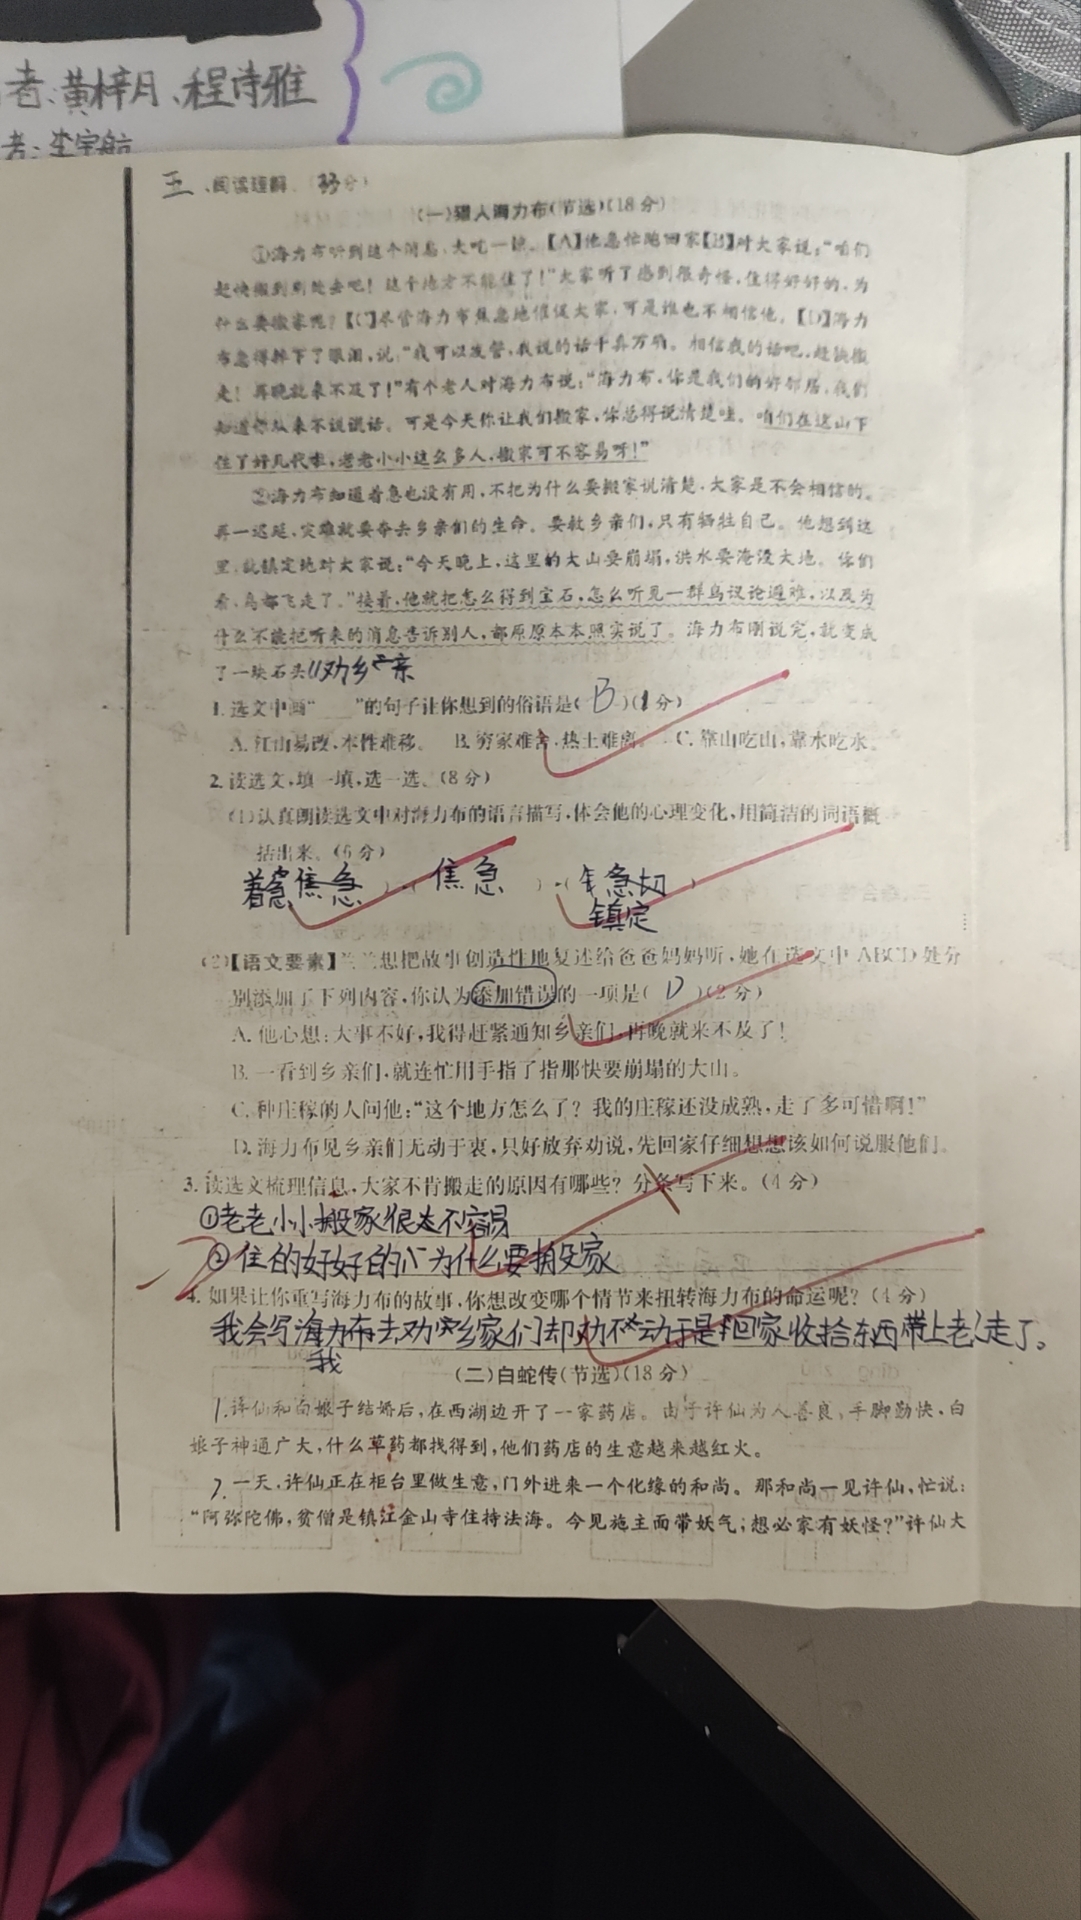 者:黄梓月、程诗雅
者:李宇航
五、阅读理解。(33分)
(一)猎人海力布(节选)(18分)
①海力布听到这个消息,大吃一惊。【A】他急忙跑回家【B】对大家说:“咱们
赶快搬到别处去吧!这个地方不能住了!”大家听了感到很奇怪,住得好好的,为
什么要搬家呢?【C】尽管海力布焦急地催促大家,可是谁也不相信他。【D】海力
布急得掉下了眼泪,说:“我可以发誓,我说的话千真万确。相信我的话吧,赶快搬
走!再晚就来不及了!”有个老人对海力布说:“海力布,你是我们的好邻居,我们
知道你从来不说谎话。可是今天你让我们搬家,你总得说清楚哇。咱们在这山下
住了好几代啦,老老小小这么多人,搬家可不容易呀!”
②海力布知道着急也没有用,不把为什么要搬家说清楚,大家是不会相信的。
再一迟延,灾难就要夺去乡亲们的生命。要救乡亲们,只有牺牲自己。他想到这
里,就镇定地对大家说:“今天晚上,这里的大山要崩塌,洪水要淹没大地。你们
看,鸟都飞走了。”接着,他就把怎么得到宝石,怎么听见一群鸟议论避难,以及为
什么不能把听来的消息告诉别人,都原原本本照实说了。海力布刚说完,就变成
了一块石头 劝乡亲
1.选文中画“___”的句子让你想到的俗语是( B )(1分)
A.江山易改,本性难移。 B.穷家难舍,热土难离。 C.靠山吃山,靠水吃水。
2.读选文,填一填,选一选。(8分)
(1)认真朗读选文中对海力布的语言描写,体会他的心理变化,用简洁的词语概
括出来。(6分)
着急焦急 )→( 焦急 )→( 急切 )
镇定
(2)【语文要素】兰兰想把故事创造性地复述给爸爸妈妈听,她在选文中ABCD处分
别添加了下列内容,你认为添加错误的一项是( D )(2分)
A.他心想:大事不好,我得赶紧通知乡亲们,再晚就来不及了!
B.一看到乡亲们,就连忙用手指了指那快要崩塌的大山。
C.种庄稼的人问他:“这个地方怎么了?我的庄稼还没成熟,走了多可惜啊!”
D.海力布见乡亲们无动于衷,只好放弃劝说,先回家仔细想想该如何说服他们。
3.读选文梳理信息,大家不肯搬走的原因有哪些?分条写下来。(4分)
①老老小小搬家很不容易
②住的好好的为什么要搬家
4.如果让你重写海力布的故事,你想改变哪个情节来扭转海力布的命运呢?(4分)
我会写海力布去劝乡家们却劝不动于是回家收拾东西带上老走了。
我
(二)白蛇传(节选)(18分)
1.许仙和白娘子结婚后,在西湖边开了一家药店。由于许仙为人善良、手脚勤快,白
娘子神通广大,什么草药都找得到,他们药店的生意越来越红火。
2.一天,许仙正在柜台里做生意,门外进来一个化缘的和尚。那和尚一见许仙,忙说:
“阿弥陀佛,贫僧是镇江金山寺住持法海。今见施主面带妖气,想必家有妖怪?”许仙大